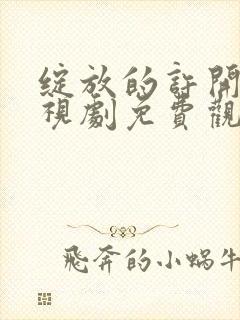 綻放的許開
視劇免費觀
飛奔的小蝸牛